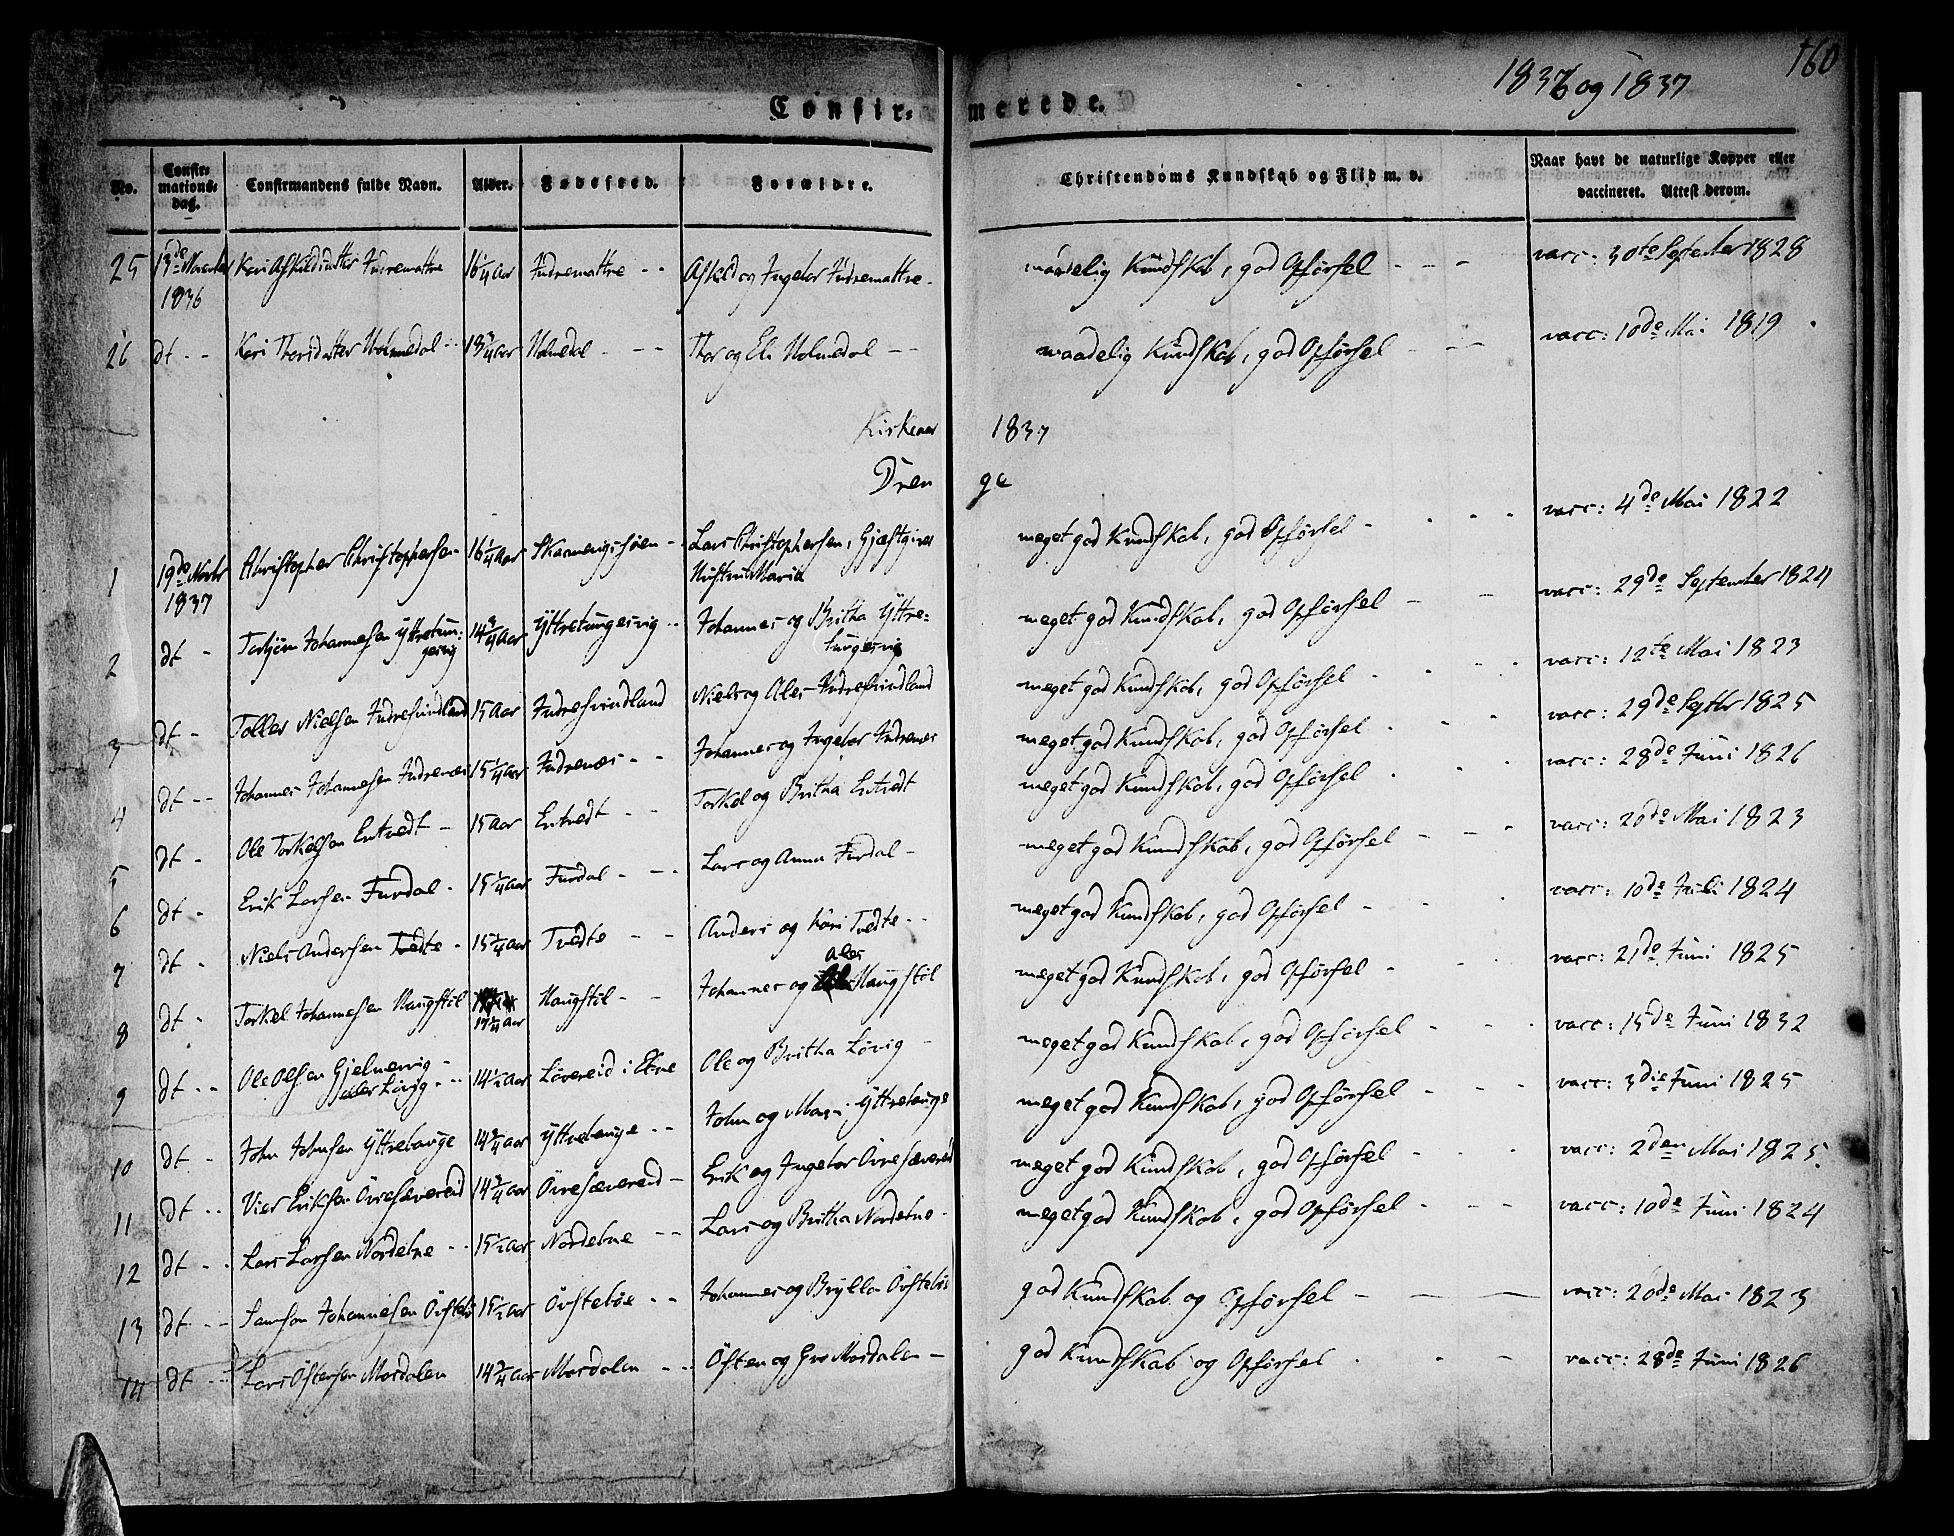 160
1836 og 1837
Confir-
merede.
No.
Confir-
mations-
dag.
Confirmandens fulde Navn.
Alder.
Fødested.
Forældre.
Christendoms Kundskab og Flid m. v.
Naar havt de naturlige Kopper eller
vaccineret. Attest derom.
25 13de November Kari Afkilddatter Indremattre 16 1/4 Aar Indremattre -- Afkild og Ingebor Indremattre. maadelig Kundskab, god Opførsel --- vacc: 30te September 1828
1836
26 dt -- Kari Thorsdatter Holmedal -- 18 3/4 Aar Holmedal --- Thor og Eli Holmedal -- maadelig Kundskab, god Opførsel --- vacc: 10de Mai 1819
Kirkeaar 1837
Dren ge
1 19de Novbr Christopher Christophersen 16 1/4 Aar Skaanevigssøen - Lars Christophersen, Gjæstgiver meget god Kundskab, god Opførsel - vacc: 4de Mai 1822
1837 Hustru Maria
2 dt - Johannesen Yttretun- 14 3/4 Aar Yttretungesvig -- Johannes og Britha Yttre- meget god Kundskab, god Opførsel - - vacc: 29de September 1824
gesvig tungesvig
3 dt - Tollev Nielsen Indresvindland 15 Aar Indresvindland Niels og Ales Indresvindland meget god Kundskab, god Opførsel - vacc: 12te Mai 1823
4 dt -- Johannes Johannesen Indrenæs 15 1/4 Aar Indrenæs -- Johannes og Ingebor Indrenæs meget god Kundskab, god Opførsel - vacc: 29de Septbr 1825
5 dt - Ole Torkelsen Entvedt - 15 Aar Entvedt -- Torkel og Britha Entvedt meget god Kundskab, god Opførsel - vacc: 28de Juni 1826
6 dt - Erik Larsen Furdal - 15 1/4 Aar Furdal --- Lars og Anna Furdal - meget god Kundskab, god Opførsel --- vacc: 20de Mai 1823
7 dt - Niels Andersen Tvedte - 15 1/4 Aar Tvedte -- Anders og Kari Tvedte -- meget god Kundskab, god Opførsel - vacc: 10de Juli 1824
Ales
8 dt - Torkel Johannesen Haugstøl Haugstøl -- Johannes og Haugstøl meget god Kundskab, god Opførsel - vacc: 21de Juni 1825
Aar
9 dt -- Ole Olsen Gjelmervig - 14 1/2 Aar Løvereid i Etne Ole og Britha Løvig - meget god Kundskab, god Opførsel - vacc: 15de Juni 1832
eller Løvig ---
10 dt - John Johnsen Yttrehauge 14 3/4 Aar Yttrehauge -- John og Mari Yttrehauge meget god Kundskab, god Opførsel --- vacc: 3die Juni 1825
11 dt -- Vier Eriksen Øvresævereid 14 3/4 Aar Øvresævereid - Erik og Ingebor Øvresævereid meget god Kundskab, god Opførsel - - - vacc: 2den Mai 1825.
12 dt -- Lars Larsen Nordetne -- 15 1/2 Aar Nordetne -- Lars og Britha Nordetne - meget god Kundskab, god Opførsel - - - vacc: 10de Juni 1824
13 dt -- Samson Johannesen Øvstebøe 15 1/2 Aar Øvstebøe -- Johannes og Brylla Øvstebøe god Kundskab og Opførsel - - - vacc: 20de Mai 1823
14 dt -- Lars Østensen Mosdalen 14 3/4 Aar Mosdalen -- Østen og Gro Mosdalen - god Kundskab og Opførsel - - - vacc: 28de Juni 1826